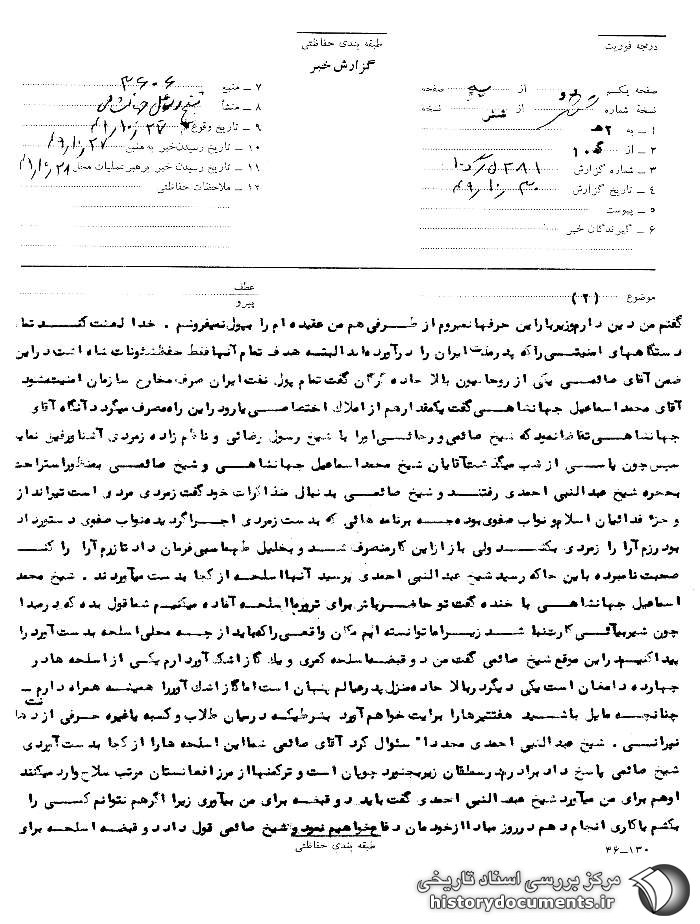 طبقه بندی حفاظتی
گزارش خبر
درجه فوریت
صفحه یکم از صفحه
نسخه شماره از شش نسخه
۱ ـ به
۲ ـ از
۳ ـ شماره گزارش
۴ ـ تاریخ گزارش
۵ ـ پیوست
۶ ـ گیرندگان خبر
۷ ـ منبع ۳۶۰۶
۸ ـ منشأ
۹ ـ تاریخ وقوع
۱۰ ـ تاریخ رسیدن خبر به منبع
۱۱ ـ تاریخ رسیدن خبر برهبر عملیات محل
۱۲ ـ ملاحظات حفاظتی
موضوع (۲)
عطف
پیرو
گفتم من دین دارم وزیر بار این حرفها نمیروم از طرفی هم من عقیده ام را بپول نمیفروشم . خدا لعنت کند تمام
دستگاههای امنیتی را که پدر ملت ایران را درآورده اند البته هدف تمام آنها فقط حفظ شئونات شاه است در این
ضمن آقای صائمی یکی از روحانیون بالا جاده گرگان گفت تمام پول نفت ایران صرف مخارج سازمان امنیت میشود
آقای محمد اسماعیل جهانشاهی گفت یکمقدار هم از املاک اختصاصی یارو در این راه مصرف میگردد آنگاه آقای
جهانشاهی تقاضا نمود که شیخ صائمی و رجائی او را با شیخ رسول رضائی و ناظم زاده زمردی آشنا و رفیق نماید
سپس چون پاسی از شب میگذشت آقایان شیخ محمد اسماعیل جهانشاهی و شیخ صائمی بمنظور استراحت
بحجره شیخ عبدالنبی احمدی رفتند و شیخ صائمی بدنبال مذاکرات خود گفت زمردی مردی است تیرانداز
و جزء فدائیان اسلام و نواب صفوی بوده همه برنامه هائی که بدست زمردی اجرا گردیده نواب صفوی دستور داده
بود رزم آرا را زمردی بکشد ولی باز از این کار منصرف شد و بخلیل طهماسبی فرمان داد تا رزم آرا را کشت
صحبت نامبرده باین جا که رسید شیخ عبدالنبی احمدی پرسید آنها اسلحه از کجا بدست میآوردند . شیخ محمد
اسماعیل جهانشاهی با خنده گفت تو حاضر باش برای ترور ما اسلحه آماده میکنیم شما قول بده که درمیدا
چون شیر بیآئی کارت نباشد زیرا ما توانسته ایم مکان واقعی را که باید از چه محلی اسلحه بدست آورد را
پیدا کنیم در این موقع شیخ صائمی گفت من دو قبضه اسلحه کمری و یک گاز اشک آور دارم یکی از اسلحه ها در
چهارده دامغان است یکی دیگر در بالا جاده منزل پدر عیالم پنهان است اما گاز اشک آور را همیشه همراه دارم ـ
چنانچه مایل باشید هفت تیرها را برایت خواهم آورد بشرطیکه در میان طلاب و کسبه یا غیره حرفی از دهانت
نپرانی . شیخ عبدالنبی احمدی مجددا" سئوال کرد آقای صائمی شما این اسلحه ها را از کجا بدست آوردی
شیخ صائمی پاسخ داد برادرم در سملقان زیر بجنورد چوپان است و ترکمنها از مرز افغانستان مرتب سلاح وارد میکنند
او هم برای من میآورد شیخ عبدالنبی احمدی گفت باید دو قبضه برای من بیآوری زیرا اگر هم نتوانم کسی را
بکشم یا کاری انجام دهم در روز مبادا از خودمان دفاع خواهیم نمود و شیخ صائمی قول داد دو قبضه اسلحه برای
طبقه بندی حفاظتی
۳۶ـ۱۳۰
مرکز بررسی اسناد تاریخی
historydocuments.ir